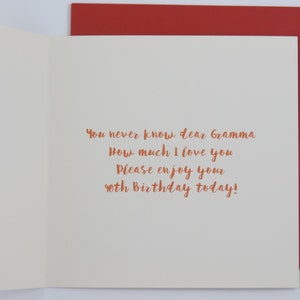 You never know dear Gramma
How much I love you
Please enjoy your
90th Birthday today!